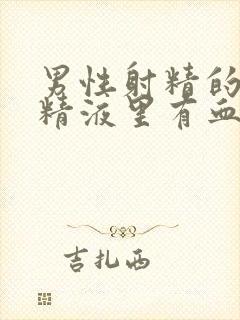 男性射精的
精液里有血
吉扎西